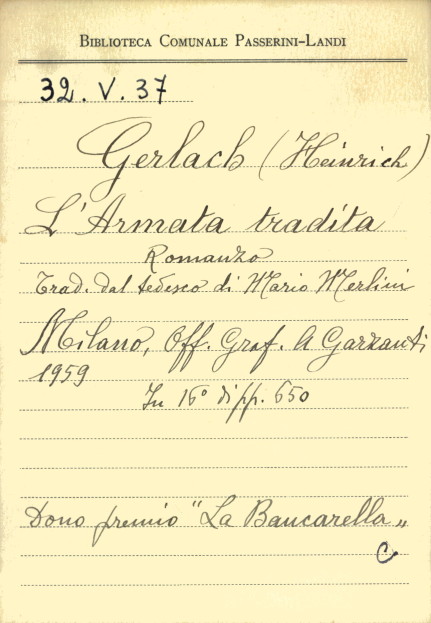 BIBLIOTECA COMUNALE PASSERINI-LANDI
32. V. 37
Gerlach (Heinrich)
L'Armata tradita
Romanzo
Trad. dal tedesco di Mario Merlini
Milano, Off. Graf. A Garzanti
1959
In 16° di pp. 650
Dono premio "La Bancarella„
C